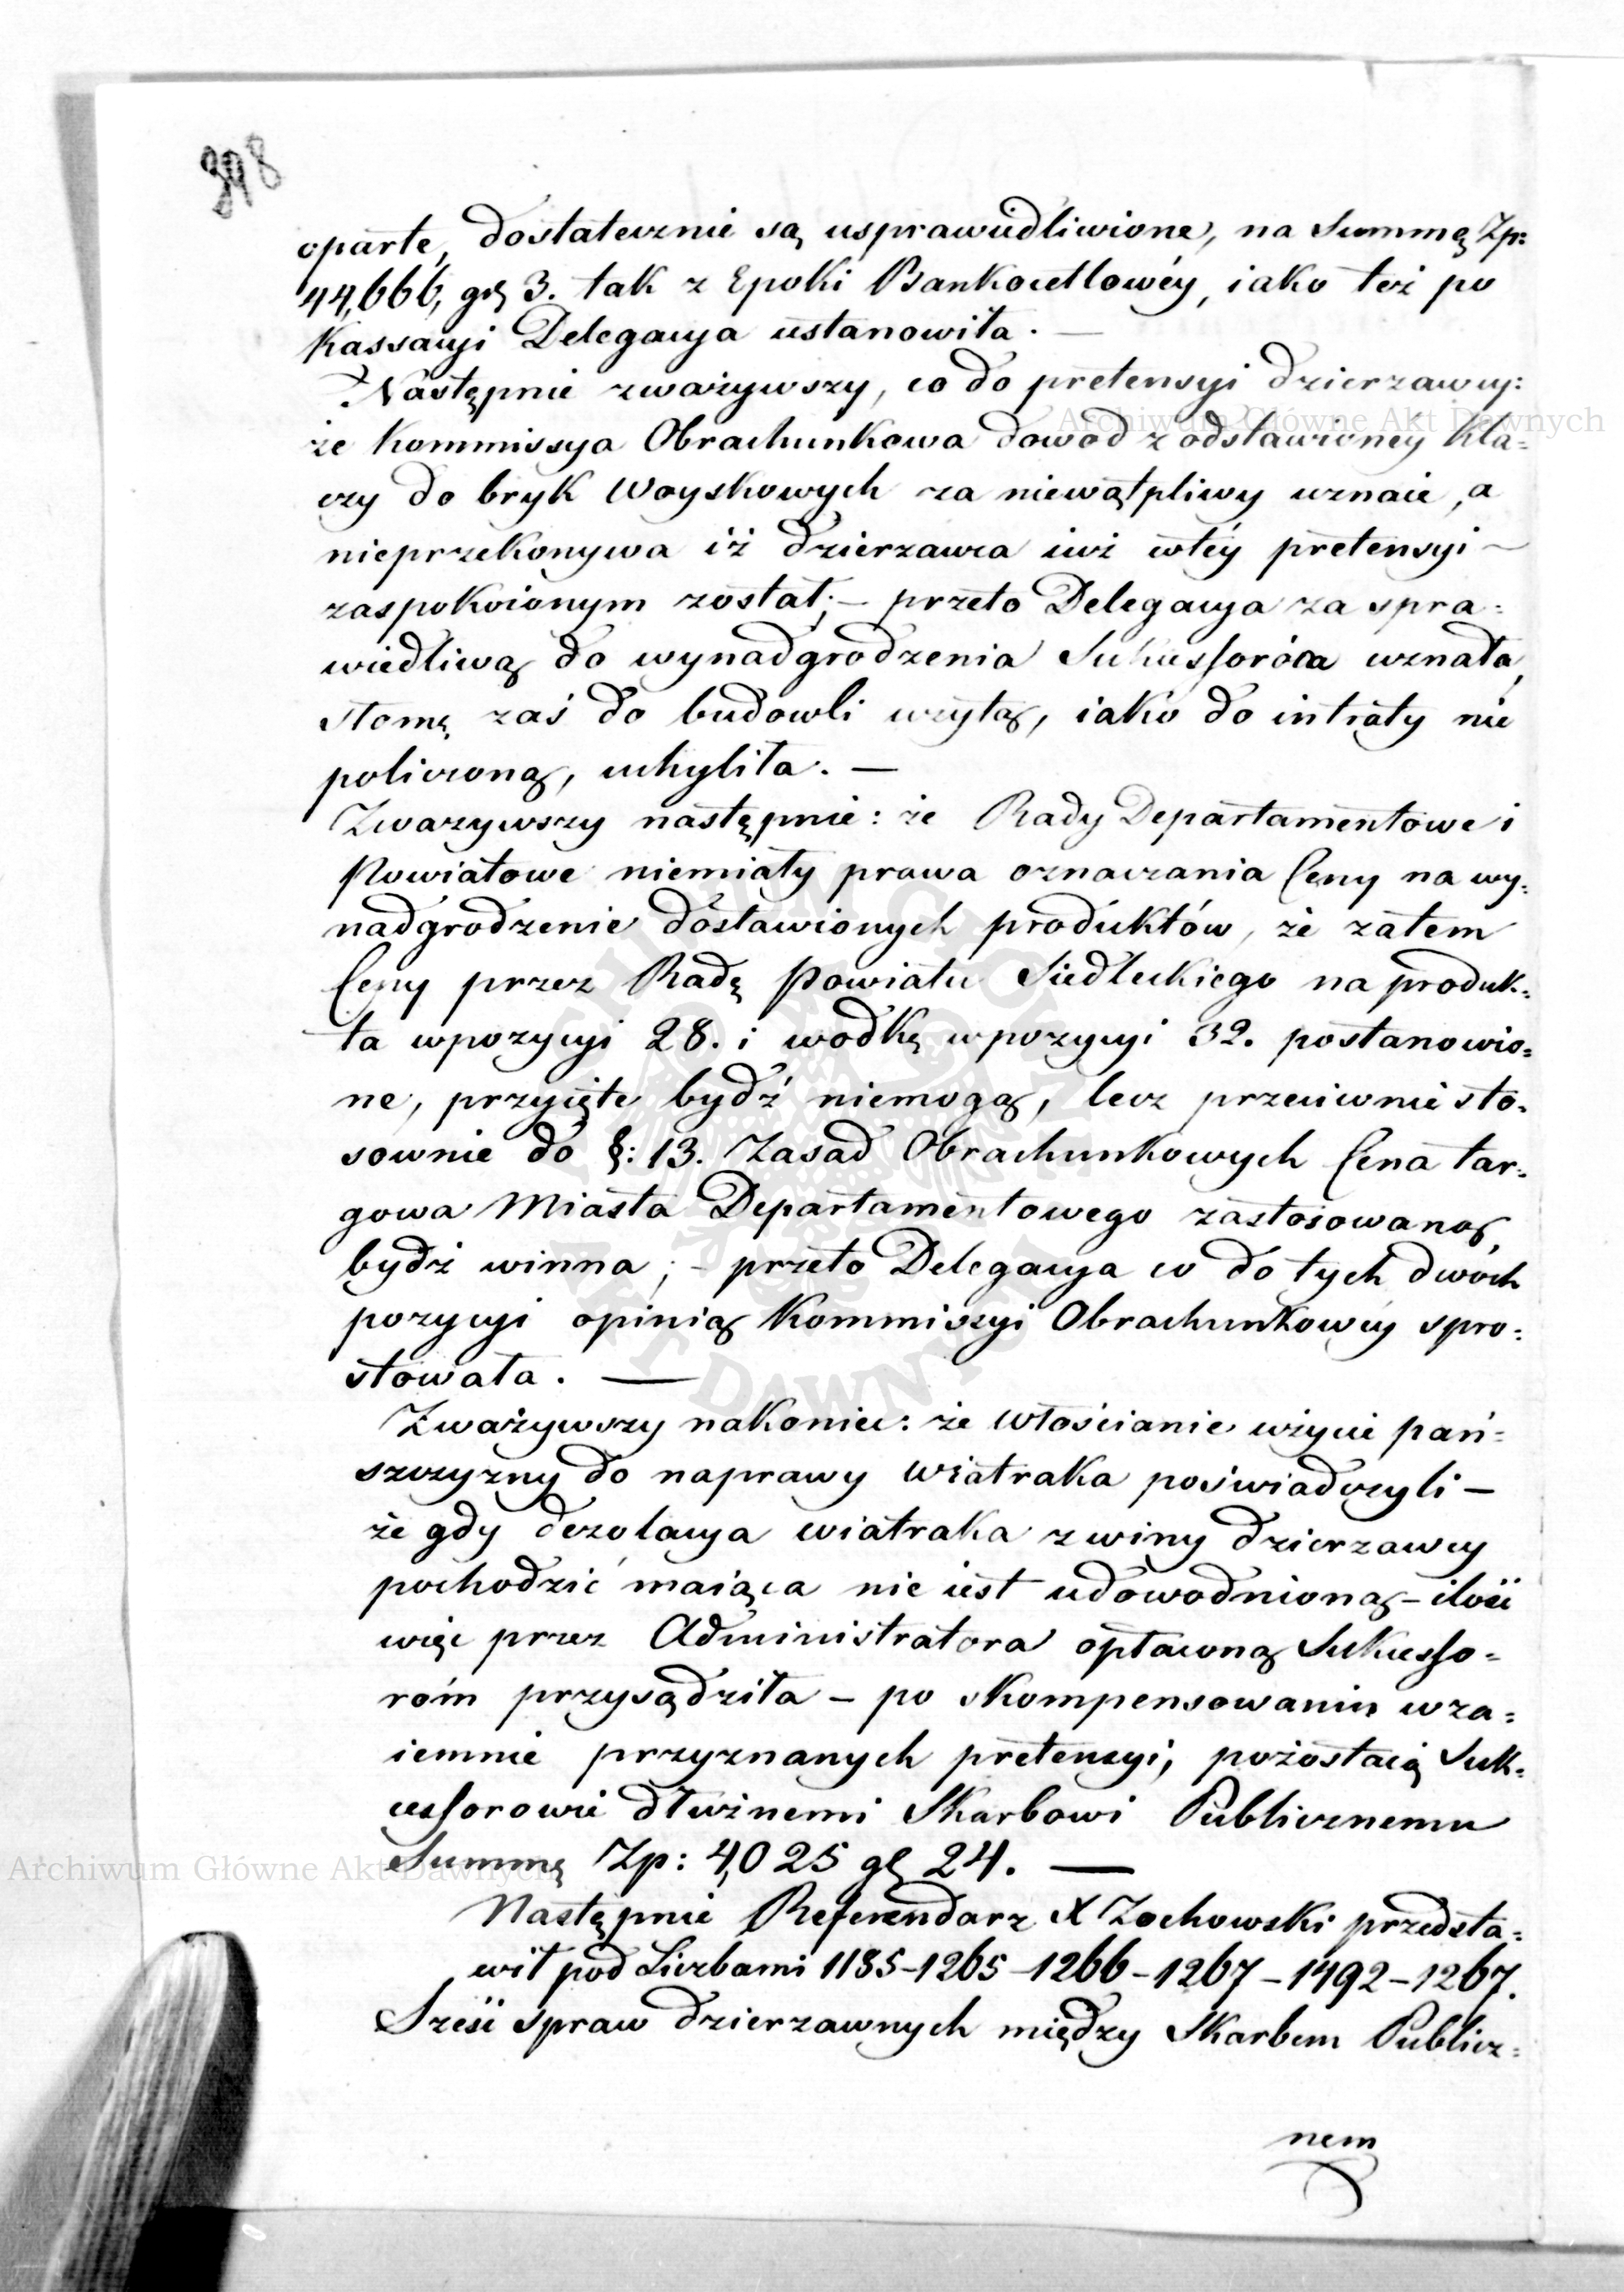 398
oparte, dostatecznie są usprawiedliwione, na Summę Zp:
44,666, gr 3. tak z Epoki Bankocetlowéy, iako też po
Kassacyi Delegacya ustanowiła. —
Następnie zważywszy, co do pretensyi dzierzawcy:
że Kommissya Obrachunkowa dowod z odstawioney Kla=
czy do bryk Woyskowych za niewątpliwy uznaie, a
nieprzekonywa iż dzierzawca iuż wtéy pretensyi —
zaspokoionym został; — przeto Delegacya za spra=
wiedliwą do wynadgrodzenia Sukcessorów uznała,
słomę zaś do budowli użytą, iako do intraty nie
policzoną, uchyliła. —
Zwazywszy następnie: że Rady Departamentowe i
Powiatowe niemiały prawa oznaczania Ceny na wy=
nadgrodzenie dostawionych produktów, że zatem
Ceny przez Radę Powiatu Siedleckiego na produk=
ta wpozycyi 28. i wodkę wpozycyi 32. postanowio=
ne, przyięte bydź niemogą, lecz przeciwnie sto=
sownie do §: 13. Zasad Obrachunkowych Cena tar=
gowa Miasta Departamentowego zastosowaną
bydź winna; — przeto Delegacya co do tych dwóch
pozycyi opinią Kommissyi Obrachunkowéy spro=
stowała. —
Zważywszy nakoniec: że Włościanie użycie pań=
szczyzny do naprawy wiatraka poświadczyli —
że gdy dezolacya wiatraka z winy dzierzawcy
pochodzić maiąca nie iest udowodnioną — ilość
więc przez Administratora opłaconą Sukcesso=
róm przysądziła — po skompensowaniu wza=
iemnie przyznanych pretensyi, pozostaią Suk=
cessorowie dłużnemi Skarbowi Publicznemu
Summę Zp: 4,025 gr 24. —
Następnie Referendarz X Zochowski przedsta=
wił pod Liczbami 1185-1265-1266-1267-1492-1267.
Sześć spraw dzierzawnych między Skarbem Publicz=
nem
Archiwum Główne Akt Dawnych
Archiwum Główne Akt Dawnych